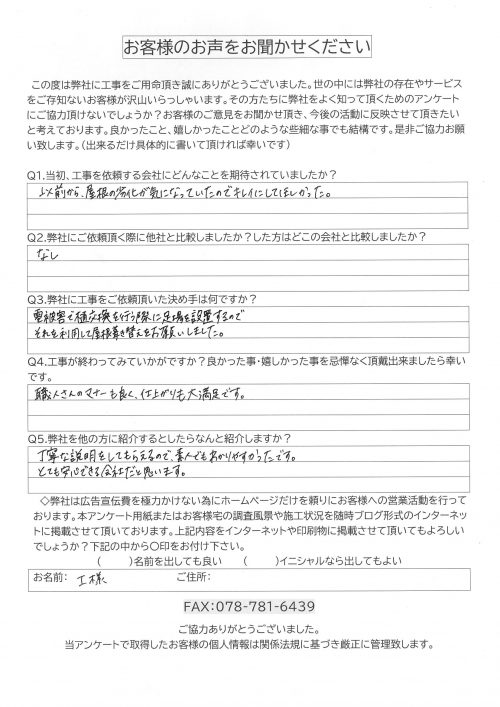 お客様のお声をお聞かせください
この度は弊社に工事をご用命頂き誠にありがとうございました。世の中には弊社の存在やサービス
をご存知ないお客様が沢山いらっしゃいます。その方たちに弊社をよく知って頂くためのアンケート
にご協力頂けないでしょうか?お客様のご意見をお聞かせ頂き、今後の活動に反映させて頂きたい
と考えております。良かったこと、嬉しかったことどのような些細な事でも結構です。是非ご協力お願
い致します。(出来るだけ具体的に書いて頂ければ幸いです)
Q1.当初、工事を依頼する会社にどんなことを期待されていましたか?
以前から、屋根の劣化が気になっていたのでキレイにしてほしかった。
Q2.弊社にご依頼頂く際に他社と比較しましたか?した方はどこの会社と比較しましたか?
なし
Q3.弊社に工事をご依頼頂いた決め手は何ですか?
雹被害で樋交換を行う際に足場を設置するので
それを利用して屋根葺き替えをお願いしました。
Q4.工事が終わってみていかがですか?良かった事・嬉しかった事を忌憚なく頂戴出来ましたら幸い
です。
職人さんのマナーも良く、仕上がりも大満足です。
Q5.弊社を他の方に紹介するとしたらなんと紹介しますか?
丁寧な説明をしてもらえるので、素人でもわかりやすかったです。
とても安心できる会社だと思います。
◇弊社は広告宣伝費を極力かけない為にホームページだけを頼りにお客様への営業活動を行って
おります。本アンケート用紙またはお客様宅の調査風景や施工状況を随時ブログ形式のインターネッ
トに掲載させて頂いております。上記内容をインターネットや印刷物に掲載させて頂いてもよろしい
でしょうか?下記の中から〇印をお付け下さい。
( )名前を出しても良い ( )イニシャルなら出してもよい
お名前: 工様 ご住所:
FAX:078-781-6439
ご協力ありがとうございました。
当アンケートで取得したお客様の個人情報は関係法規に基づき厳正に管理致します。